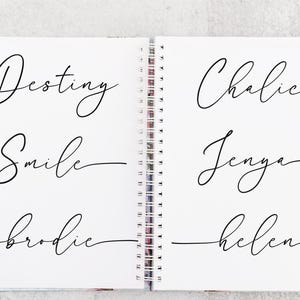 Destiny
Smile
brodie
Chalie
Jenya
helen